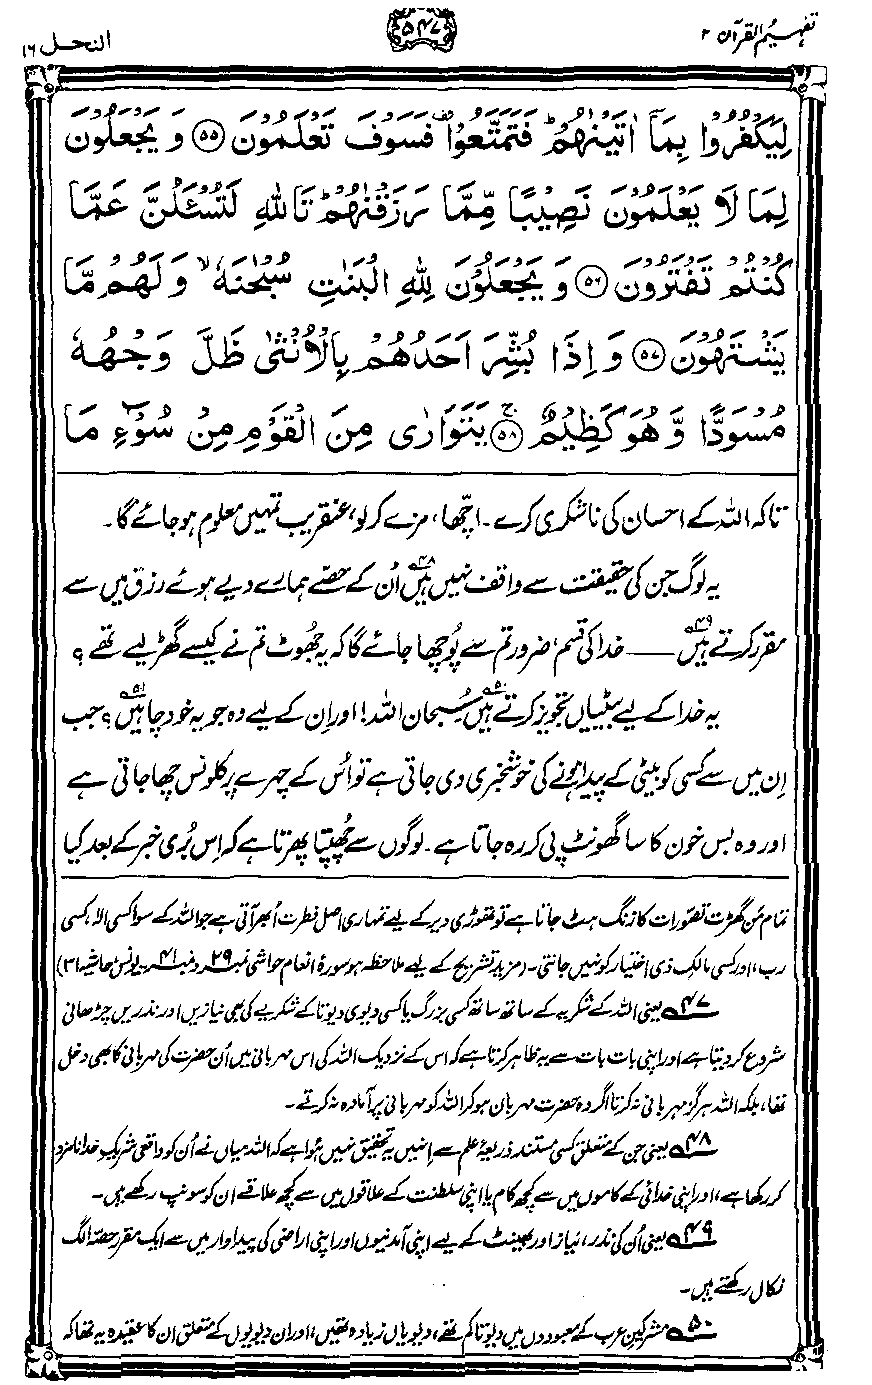 تفہیم القرآن ۲
۵۴۷
النحل ۱۶
لِيَكْفُرُوا بِمَآ اٰتَيْنٰهُمْ ؕ فَتَمَتَّعُوْا ۫ فَسَوْفَ تَعْلَمُوْنَ ﴿۵۵﴾ وَ يَجْعَلُوْنَ
لِمَا لَا يَعْلَمُوْنَ نَصِيْبًا مِّمَّا رَزَقْنٰهُمْ ؕ تَاللّٰهِ لَتُسْـَٔلُنَّ عَمَّا
كُنْتُمْ تَفْتَرُوْنَ ﴿۵۶﴾ وَ يَجْعَلُوْنَ لِلّٰهِ الْبَنٰتِ سُبْحٰنَهٗ ۙ وَ لَهُمْ مَّا
يَشْتَهُوْنَ ﴿۵۷﴾ وَ اِذَا بُشِّرَ اَحَدُهُمْ بِالْاُنْثٰى ظَلَّ وَجْهُهٗ
مُسْوَدًّا وَّ هُوَ كَظِيْمٌ ﴿۵۸﴾ ۚ يَتَوَارٰى مِنَ الْقَوْمِ مِنْ سُوْٓءِ مَا
تاکہ اللہ کے احسان کی ناشکری کرے۔ اچھا، مزے کرلو، عنقریب تمہیں معلوم ہو جائے گا۔
یہ لوگ جن کی حقیقت سے واقف نہیں ہیں۴۸ اُن کے حصے ہمارے دیے ہوئے رزق میں سے
مقرر کرتے ہیں۴۹ ــــــ خدا کی قسم، ضرور تم سے پُوچھا جائے گا کہ یہ جُھوٹ تم نے کیسے گھڑ لیے تھے؟
یہ خدا کے لیے بیٹیاں تجویز کرتے ہیں۵۰ سُبحان اللہ! اور اِن کے لیے وہ جو یہ خود چاہیں۵۱؟ جب
اِن میں سے کسی کو بیٹی کے پیدا ہونے کی خوشخبری دی جاتی ہے تو اُس کے چہرے پر کلونس چھا جاتی ہے
اور وہ بس خون کا سا گھونٹ پی کر رہ جاتا ہے۔ لوگوں سے چُھپتا پھرتا ہے کہ اِس بُری خبر کے بعد کیا
تمام من گھڑت تصوّرات کا زنگ ہٹ جاتا ہے تو تھوڑی دیر کے لیے تمہاری اصل فطرت اُبھر آتی ہے جو اللہ کے سوا کسی الٰہ، کسی
رب، اور کسی مالکِ ذی اختیار کو نہیں جانتی۔ (مزید تشریح کے لیے ملاحظہ ہو سورۂ انعام حواشی نمبر ۲۹ و نمبر ۴۱۔ یونس حاشیہ ۳۱)
۴۷ یعنی اللہ کے شکریہ کے ساتھ ساتھ کسی بزرگ یا کسی دیوی دیوتا کے شکریے کی بھی نیازیں اور نذریں چڑھانی
شروع کر دیتا ہے اور اپنی بات بات سے یہ ظاہر کرتا ہے کہ اس کے نزدیک اللہ کی اس مہربانی میں اُن حضرت کی مہربانی کا بھی دخل
تھا، بلکہ اللہ ہرگز مہربانی نہ کرتا اگر وہ حضرت مہربان ہو کر اللہ کو مہربانی پر آمادہ نہ کرتے۔
۴۸ یعنی جن کے متعلق کسی مستند ذریعۂ علم سے اِنہیں یہ تحقیق نہیں ہُوا ہے کہ اللہ میاں نے اُن کو واقعی شریکِ خدا نامزد
کر رکھا ہے، اور اپنی خدائی کے کاموں میں سے کچھ کام یا اپنی سلطنت کے علاقوں میں سے کچھ علاقے ان کو سونپ رکھے ہیں۔
۴۹ یعنی اُن کی نذر، نیاز اور بھینٹ کے لیے اپنی آمدنیوں اور اپنی اراضی کی پیداوار میں سے ایک مقرر حصّہ الگ
نکال رکھتے ہیں۔
۵۰ مشرکینِ عرب کے معبودوں میں دیوتا کم تھے، دیویاں زیادہ تھیں، اور ان دیویوں کے متعلق ان کا عقیدہ یہ تھا کہ